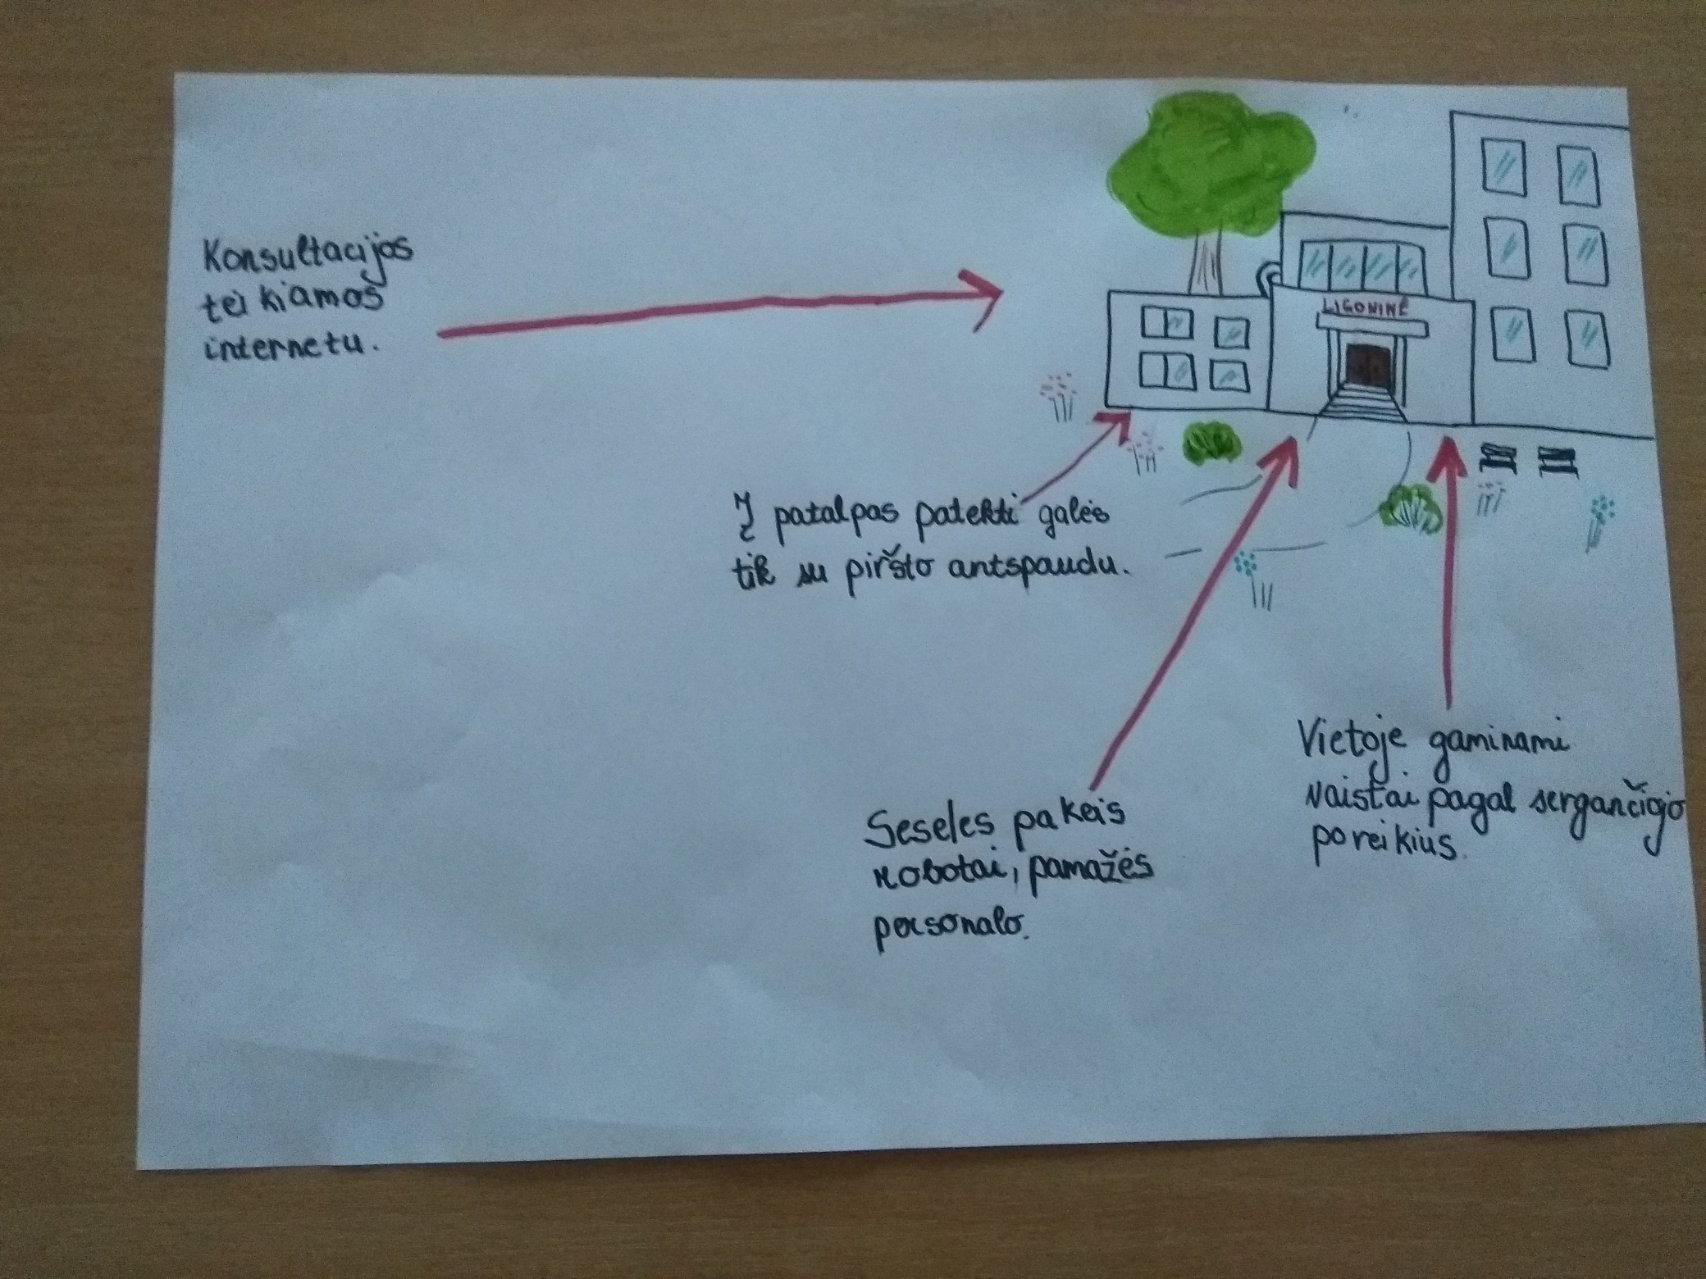 Konsultacijos
teikiamos
internetu.
LIGONINĖ
Į patalpas patekti galės
tik su piršto antspaudu.
Seseles pakeis
robotai, pamažės
personalo.
Vietoje gaminami
vaistai pagal sergančiojo
poreikius.